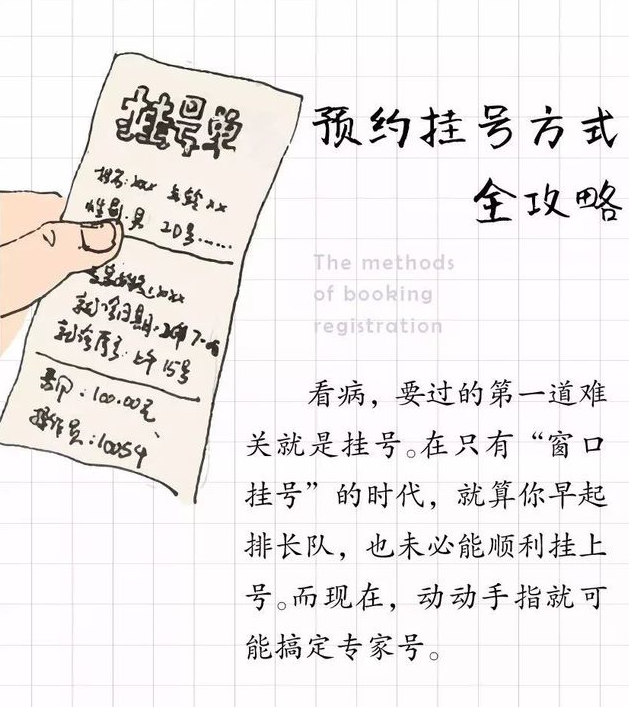 挂号单
姓名:xxx 年龄xx
性别:男 20号......
就诊日期:2017-06
就诊序号:上午15号
费用:100.00元
操作员:10054
预约挂号方式
全攻略
The methods
of booking
registration
看病,要过的第一道难
关就是挂号。在只有“窗口
挂号”的时代,就算你早起
排长队,也未必能顺利挂上
号。而现在,动动手指就可
能搞定专家号。